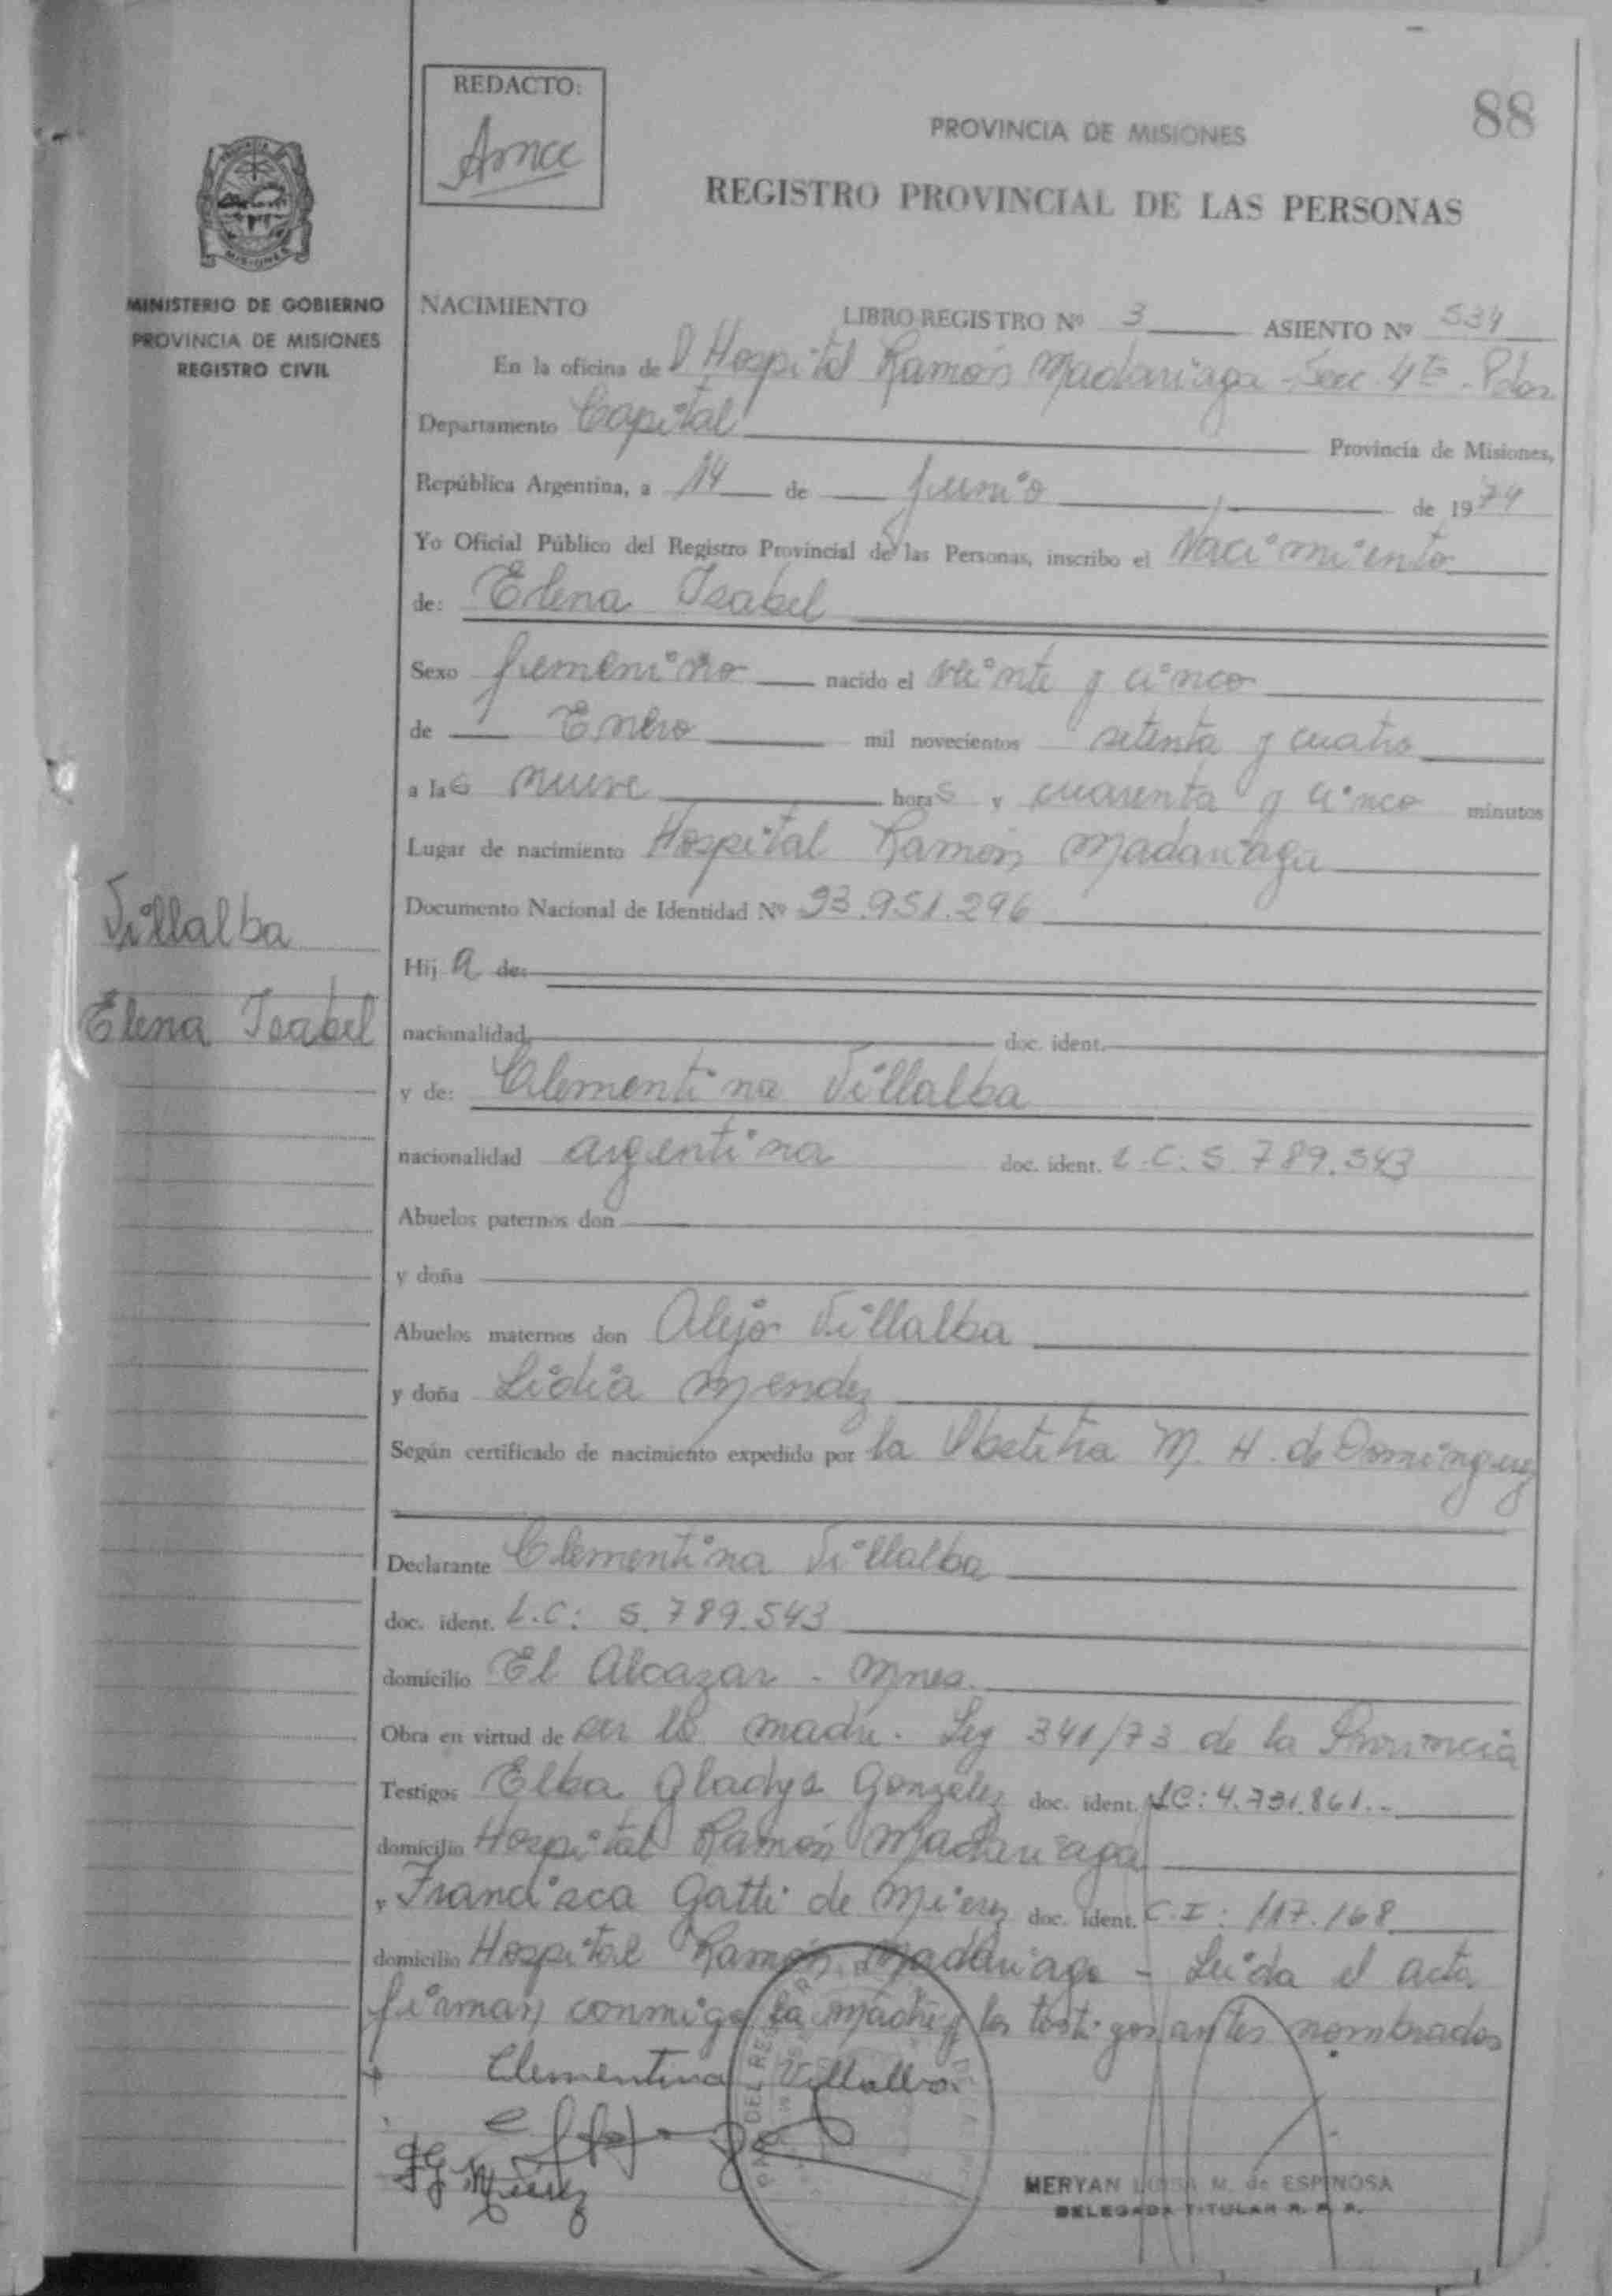 REDACTO:
88
PROVINCIA DE MISIONES
REGISTRO PROVINCIAL DE LAS PERSONAS
MISIONES
MINISTERIO DE GOBIERNO
PROVINCIA DE MISIONES
REGISTRO CIVIL
NACIMIENTO LIBRO REGISTRO Nº 3 ASIENTO Nº 534
En la oficina del Hospital Ramón Madariaga - Secc. 4ta - Pdas
Departamento Capital Provincia de Misiones,
República Argentina, a 14 de junio de 1974
Yo Oficial Público del Registro Provincial de las Personas, inscribo el Nacimiento
de: Elena Isabel
Sexo femenino nacido el veinte y cinco
de Enero mil novecientos setenta y cuatro
a las nueve horas y cuarenta y cinco minutos
Lugar de nacimiento Hospital Ramón Madariaga
Documento Nacional de Identidad Nº 23.951.296
Villalba
Elena Isabel
Hija de:
nacionalidad doc. ident.
y de: Clementina Villalba
nacionalidad argentina doc. ident. L.C: 5.789.543
Abuelos paternos don
y doña
Abuelos maternos don Alejo Villalba
y doña Lidia Mendez
Según certificado de nacimiento expedido por la Obstetra M. H. de Dominguez
Declarante Clementina Villalba
doc. ident. L.C: 5.789.543
domicilio El Alcazar - Mnes.
Obra en virtud de ser la madre. Ley 341/73 de la Provincia
Testigos Elba Gladys Gonzalez doc. ident. LC: 4.731.861.-
domicilio Hospital Ramón Madariaga
y Francisca Gatti de Mierez doc. ident. C.I: 117.168
domicilio Hospital Ramón Madariaga - Leida el acta
firman conmigo la madre y los testigos antes nombrados
Clementina Villalba
MERYAN LUISA M. de ESPINOSA
DELEGADA TITULAR R. P. P.